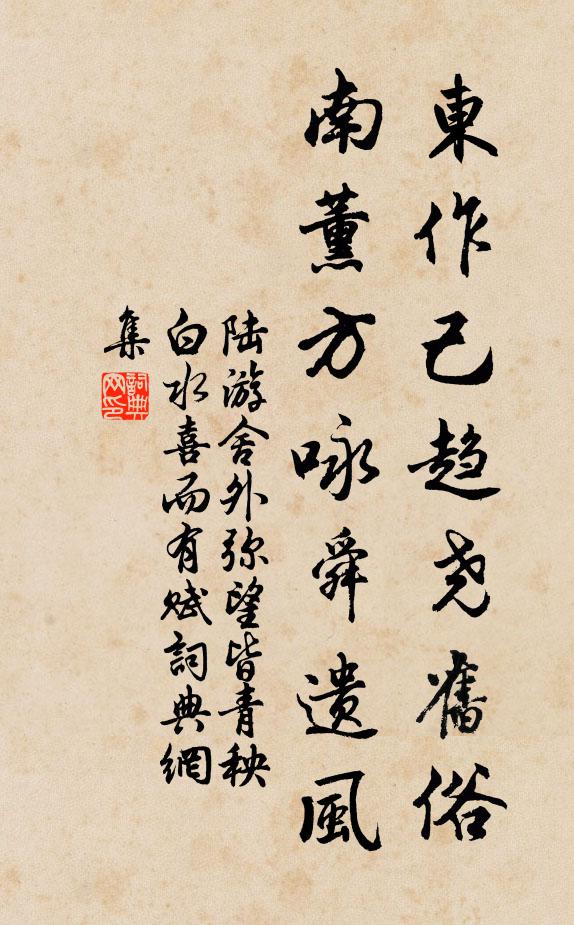 東作已趋尧舊俗
南薰方咏舜遗風
陆游舍外弥望皆青秧
白水喜而有赋詞典網
集
詞典
网印